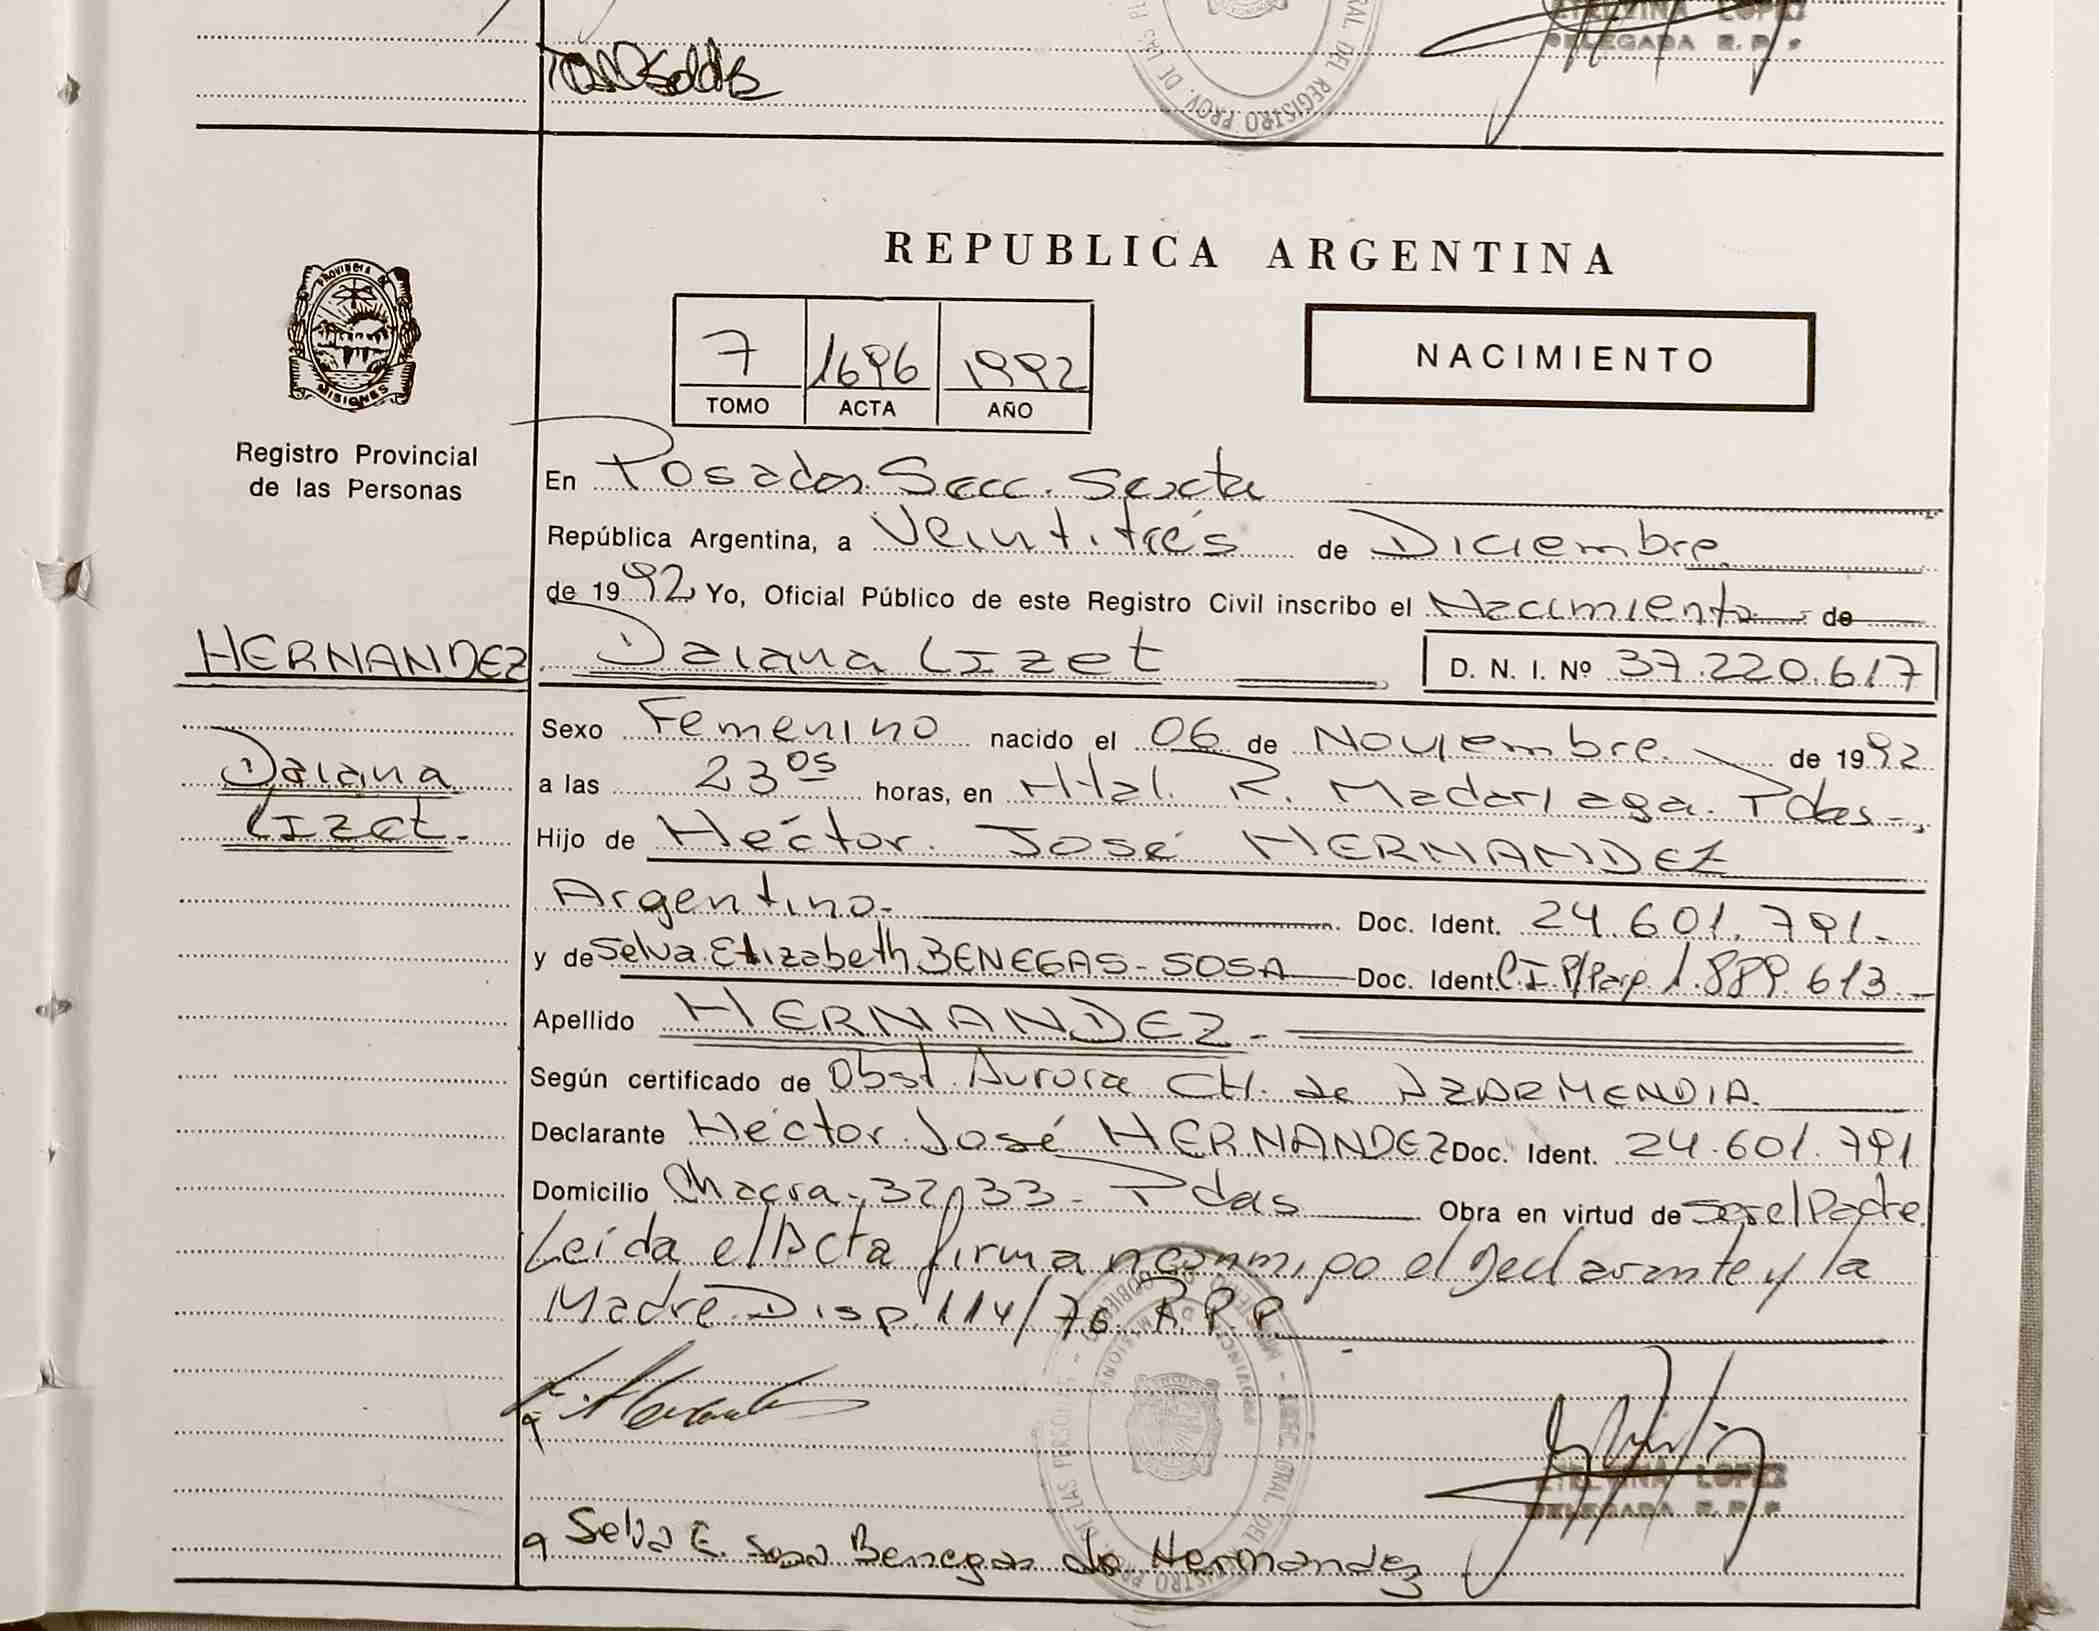 ETELVINA LOPEZ
DELEGADA R. P. P.
REGISTRO PROV. DE LAS
REPUBLICA ARGENTINA
PROVINCIA DE
MISIONES
Registro Provincial
de las Personas
7 1696 1992
TOMO ACTA AÑO
NACIMIENTO
En Posadas Secc. Sexta
República Argentina, a Veintitrés de Diciembre
de 1992 Yo, Oficial Público de este Registro Civil inscribo el Nacimiento de
HERNANDEZ Daiana Lizet D. N. I. Nº 37.220.617
Sexo Femenino nacido el 06 de Noviembre de 1992
Daiana
Lizet.
a las 23 05 horas, en Htal. R. Madariaga. Pdas-,
Hijo de Héctor José HERNANDEZ
Argentino- Doc. Ident. 24.601.791.-
y de Selva Elizabeth BENEGAS-SOSA Doc. Ident C.I.P/Parg 1.889.613-
Apellido HERNANDEZ-
Según certificado de Obst. Aurora CH. de AZARMENDIA
Declarante Héctor José HERNANDEZ Doc. Ident. 24.601.791
Domicilio Chacra-32,33- Pdas Obra en virtud de ser el Padre
Leída el Acta firman conmigo el declarante y la
Madre Disp. 114/76 R.P.P.
ETELVINA LOPEZ
DELEGADA R. P. P.
Selva E. Sosa Benegas de Hernandez